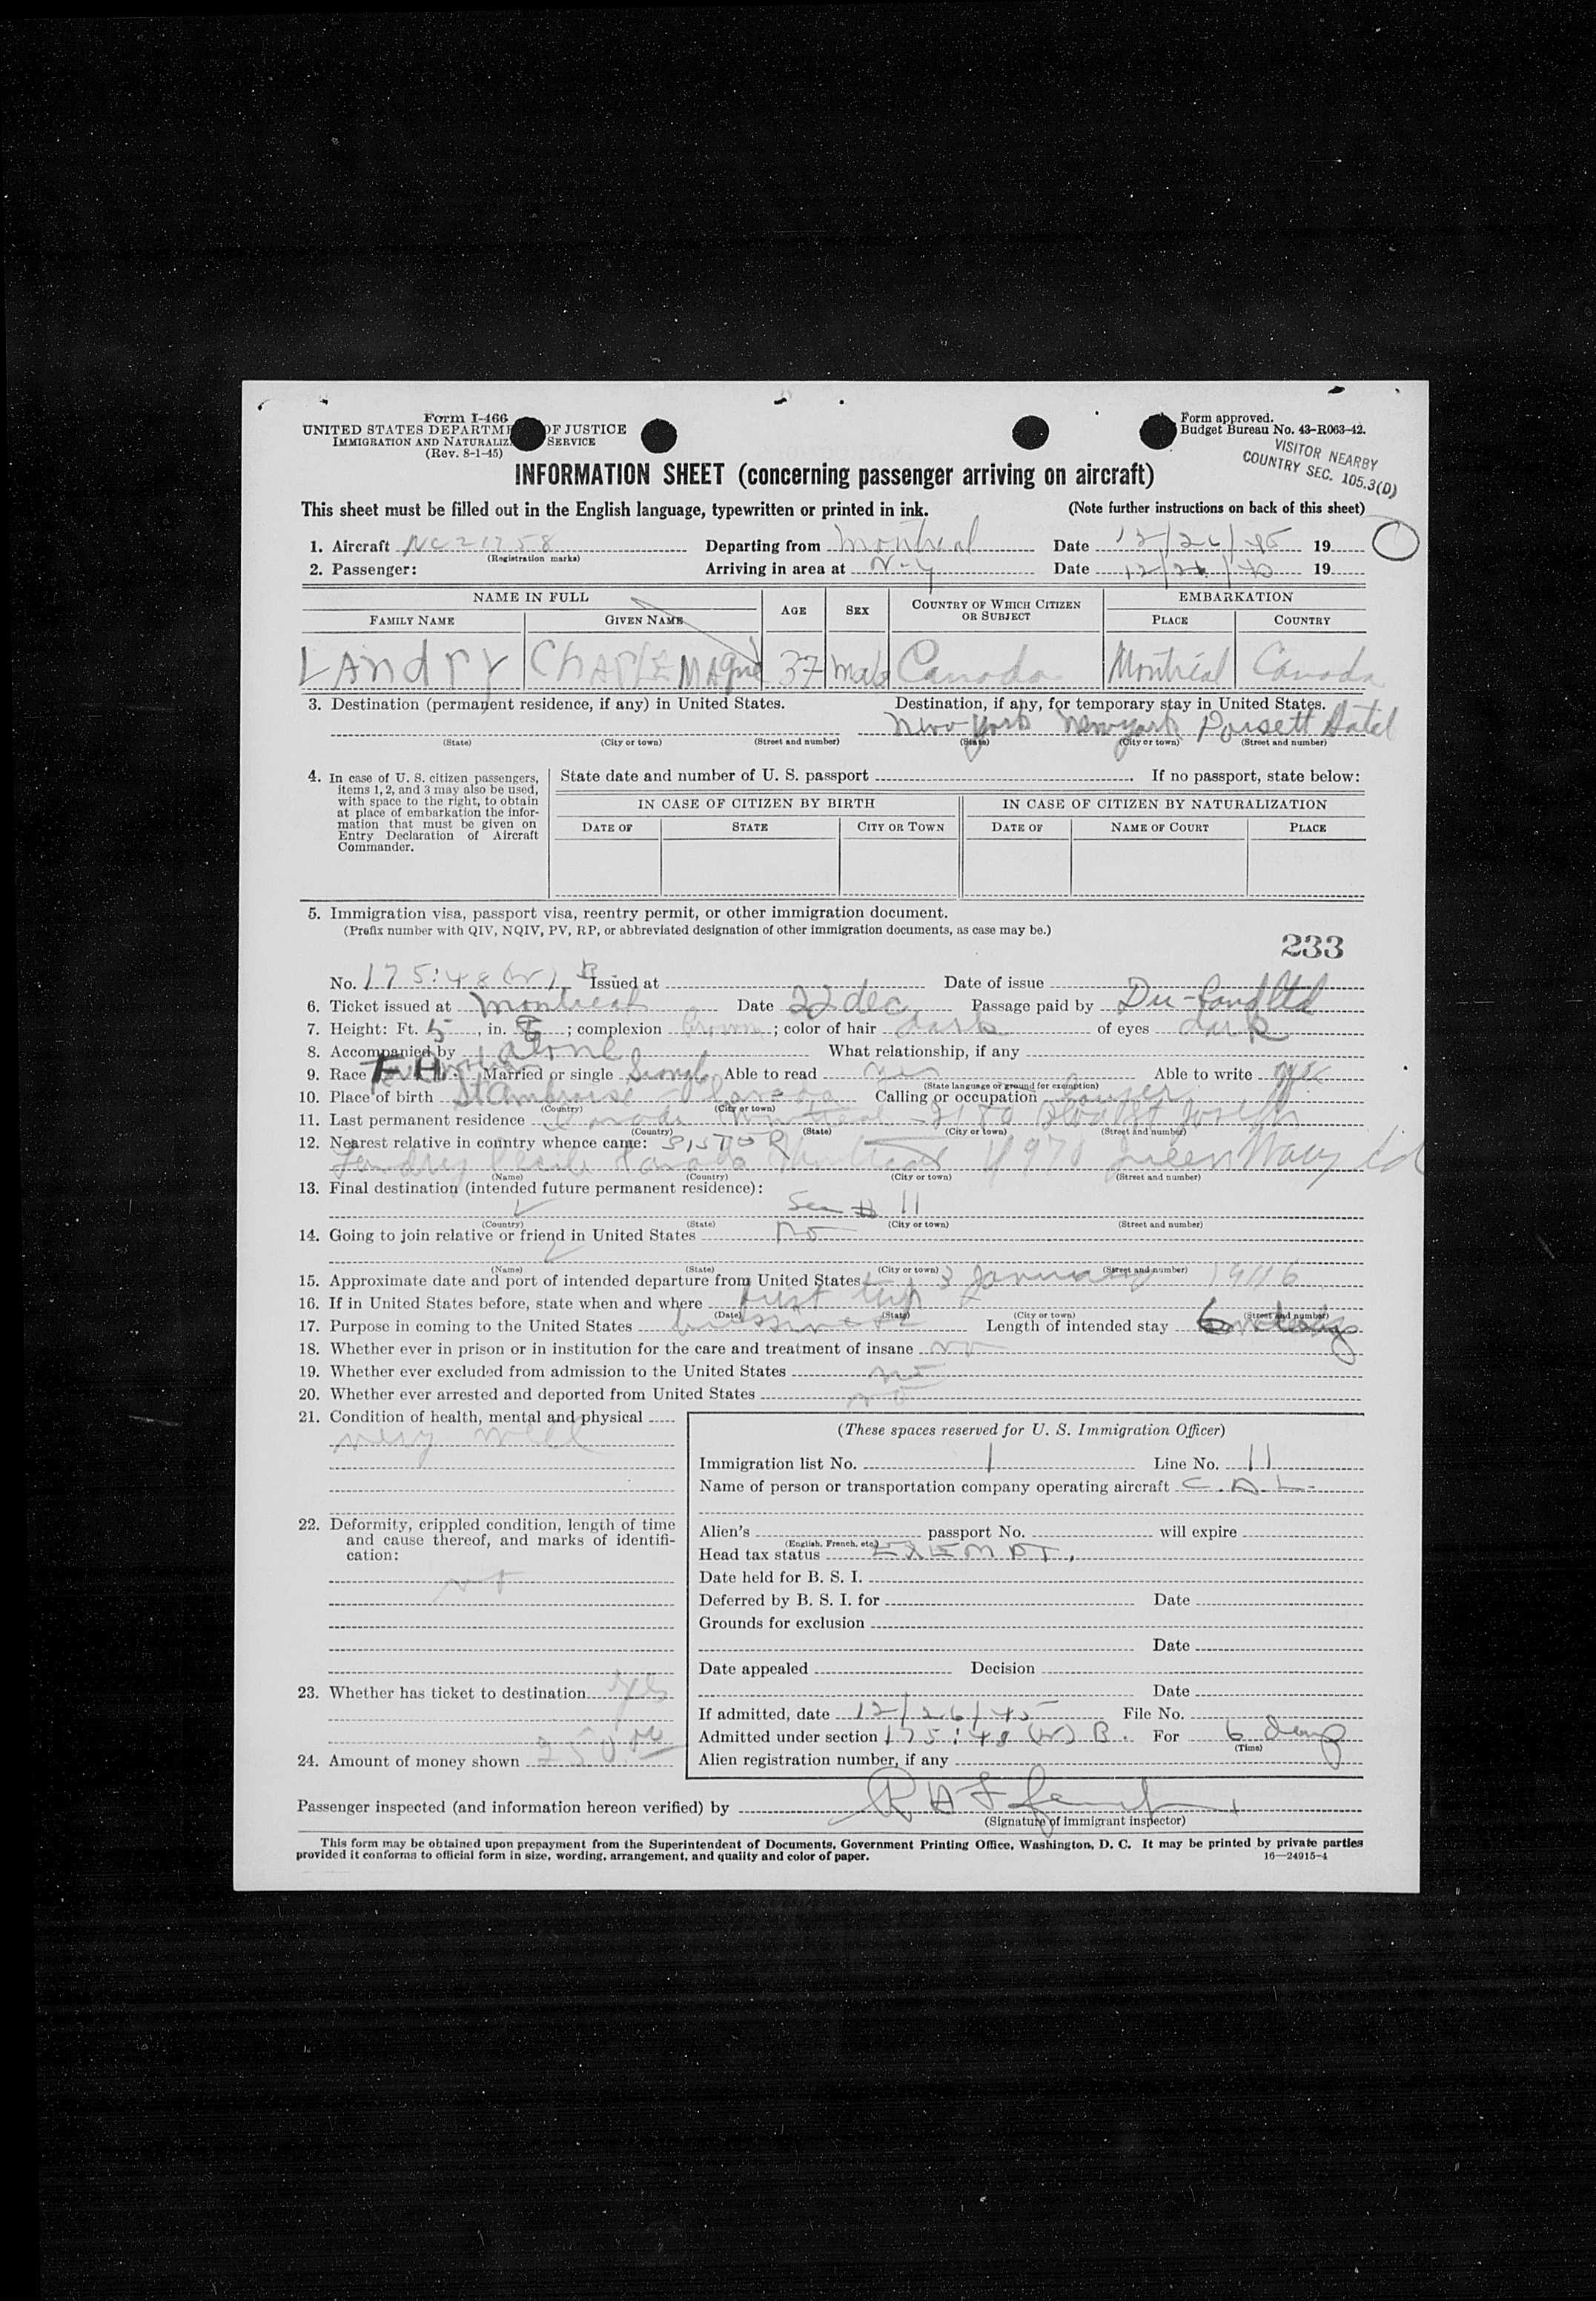 Form I-466
UNITED STATES DEPARTME OF JUSTICE
IMMIGRATION AND NATURALIZ SERVICE
(Rev. 8-1-45)
Form approved.
Budget Bureau No. 43-R063-42.
VISITOR NEARBY
COUNTRY SEC. 105.3(D)
INFORMATION SHEET (concerning passenger arriving on aircraft)
This sheet must be filled out in the English language, typewritten or printed in ink. (Note further instructions on back of this sheet)
1. Aircraft NC21758 Departing from Montreal Date 12/26/45 19
(Registration marks)
2. Passenger: Arriving in area at N-Y Date 12/26/45 19
NAME IN FULL AGE SEX COUNTRY OF WHICH CITIZEN OR SUBJECT EMBARKATION
FAMILY NAME GIVEN NAME PLACE COUNTRY
LAndry ChARLEMAgne 37 male Canada Montréal Canada
3. Destination (permanent residence, if any) in United States. Destination, if any, for temporary stay in United States.
New-York New york Hotel
(State) (City or town) (Street and number) (State) (City or town) (Street and number)
4. In case of U. S. citizen passengers, items 1, 2, and 3 may also be used, with space to the right, to obtain at place of embarkation the information that must be given on Entry Declaration of Aircraft Commander.
State date and number of U. S. passport . If no passport, state below:
IN CASE OF CITIZEN BY BIRTH IN CASE OF CITIZEN BY NATURALIZATION
DATE OF STATE CITY OR TOWN DATE OF NAME OF COURT PLACE
5. Immigration visa, passport visa, reentry permit, or other immigration document.
(Prefix number with QIV, NQIV, PV, RP, or abbreviated designation of other immigration documents, as case may be.)
233
No. 175:48 (w) B Issued at Date of issue
6. Ticket issued at Montreal Date 22 dec Passage paid by
7. Height: Ft. 5, in. 8; complexion brown; color of hair dark of eyes dark
8. Accompanied by alone What relationship, if any
9. Race F.H. Married or single Able to read yes Able to write yes
(State language or ground for exemption)
10. Place of birth St Ambroise Canada Calling or occupation
(Country) (City or town)
11. Last permanent residence Canada Montreal St Joseph
(Country) (State) (City or town) (Street and number)
12. Nearest relative in country whence came: SISTER
Landry Cécile Canada Montreal 4970
(Name) (Country) (City or town) (Street and number)
13. Final destination (intended future permanent residence):
See # 11
(Country) (State) (City or town) (Street and number)
14. Going to join relative or friend in United States no
(Name) (State) (City or town) (Street and number)
15. Approximate date and port of intended departure from United States 3 January 1946
16. If in United States before, state when and where first trip
(Date) (State) (City or town) (Street and number)
17. Purpose in coming to the United States Length of intended stay 6
18. Whether ever in prison or in institution for the care and treatment of insane no
19. Whether ever excluded from admission to the United States no
20. Whether ever arrested and deported from United States no
21. Condition of health, mental and physical
very well
22. Deformity, crippled condition, length of time and cause thereof, and marks of identification:
no
23. Whether has ticket to destination yes
24. Amount of money shown 250.00
(These spaces reserved for U. S. Immigration Officer)
Immigration list No. 1 Line No. 11
Name of person or transportation company operating aircraft C.A.L.
Alien's passport No. will expire
(English, French, etc.)
Head tax status EXEMPT.
Date held for B. S. I.
Deferred by B. S. I. for Date
Grounds for exclusion
Date
Date appealed Decision
Date
If admitted, date 12/26/45 File No.
Admitted under section 175:48 (w) B. For 6 days
(Time)
Alien registration number, if any
Passenger inspected (and information hereon verified) by
(Signature of immigrant inspector)
This form may be obtained upon prepayment from the Superintendent of Documents, Government Printing Office, Washington, D. C. It may be printed by private parties
provided it conforms to official form in size, wording, arrangement, and quality and color of paper. 16—24915-4